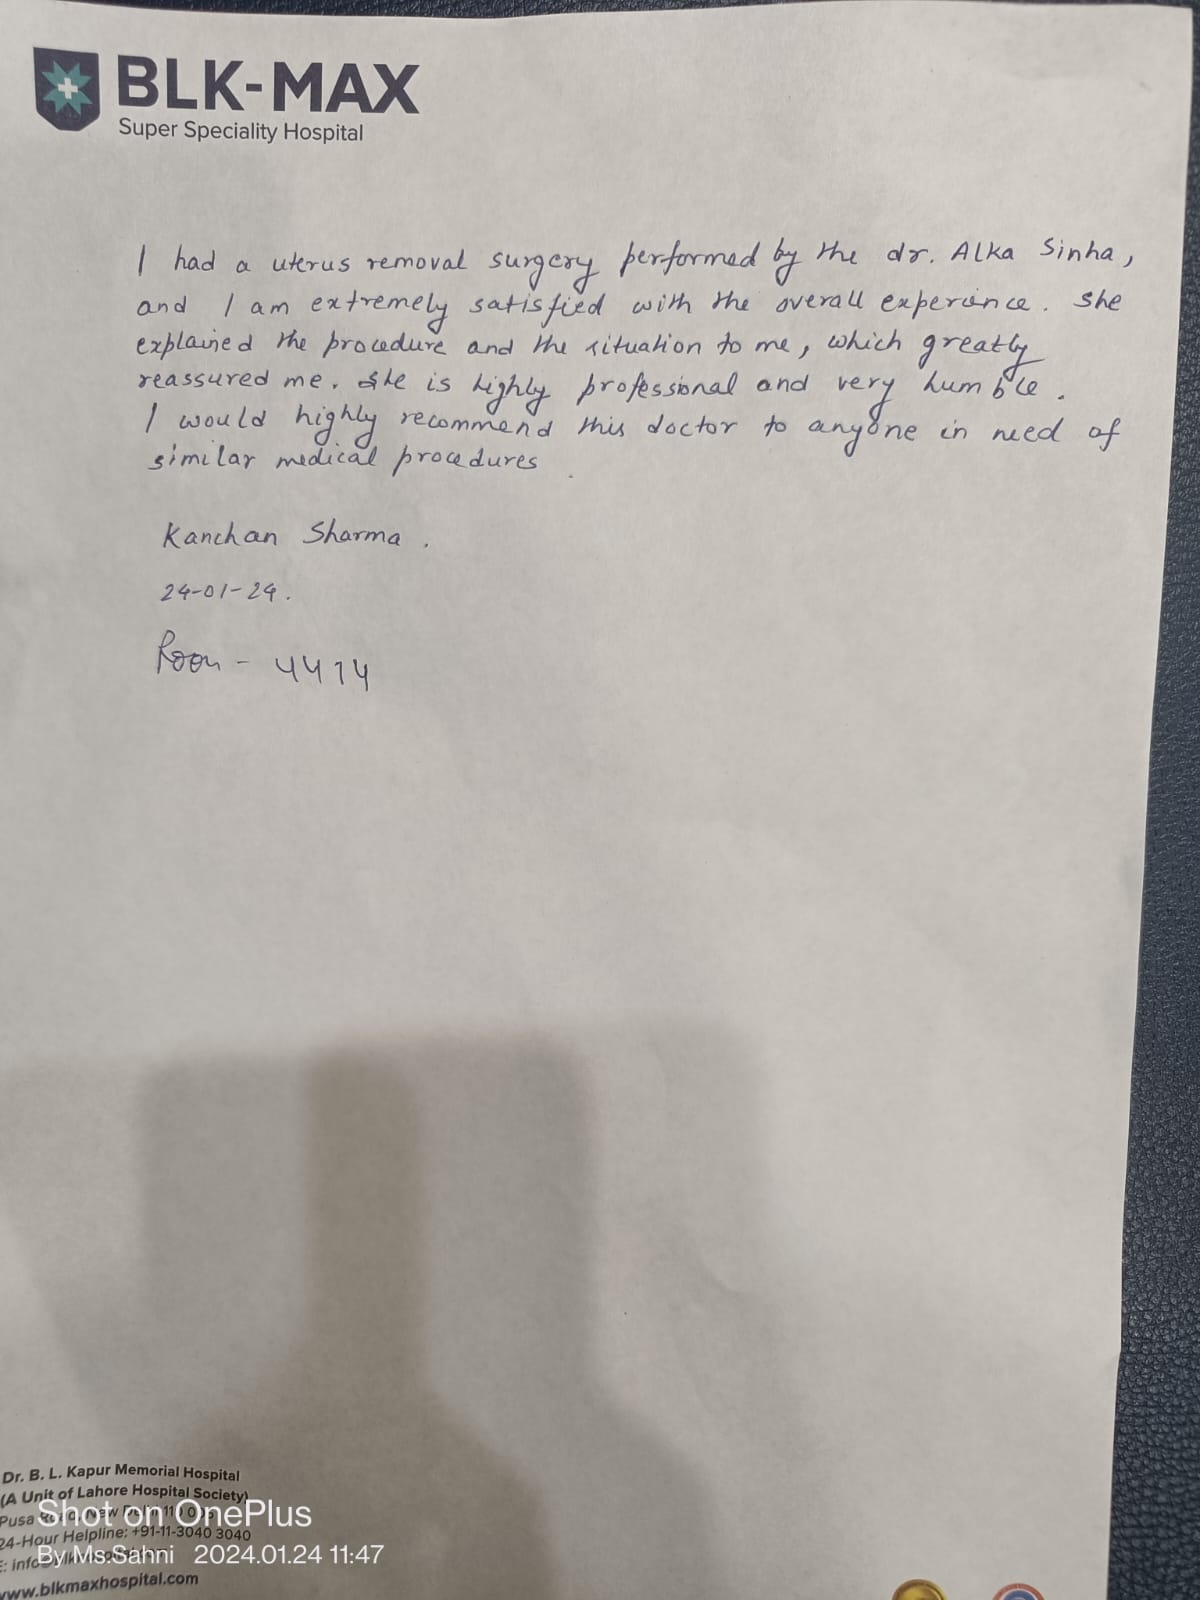 BLK-MAX
Super Speciality Hospital
I had a uterus removal surgery performed by the dr. Alka Sinha,
and I am extremely satisfied with the overall experience. She
explained the procedure and the situation to me, which greatly
reassured me. She is highly professional and very humble.
I would highly recommend this doctor to anyone in need of
similar medical procedures.
Kanchan Sharma.
24-01-24.
Room - 4414
Dr. B. L. Kapur Memorial Hospital
(A Unit of Lahore Hospital Society)
Pusa New Delhi
24-Hour Helpline: +91-11-3040 3040
E:
www.blkmaxhospital.com
Shot on OnePlus
By Ms.Sahni 2024.01.24 11:47